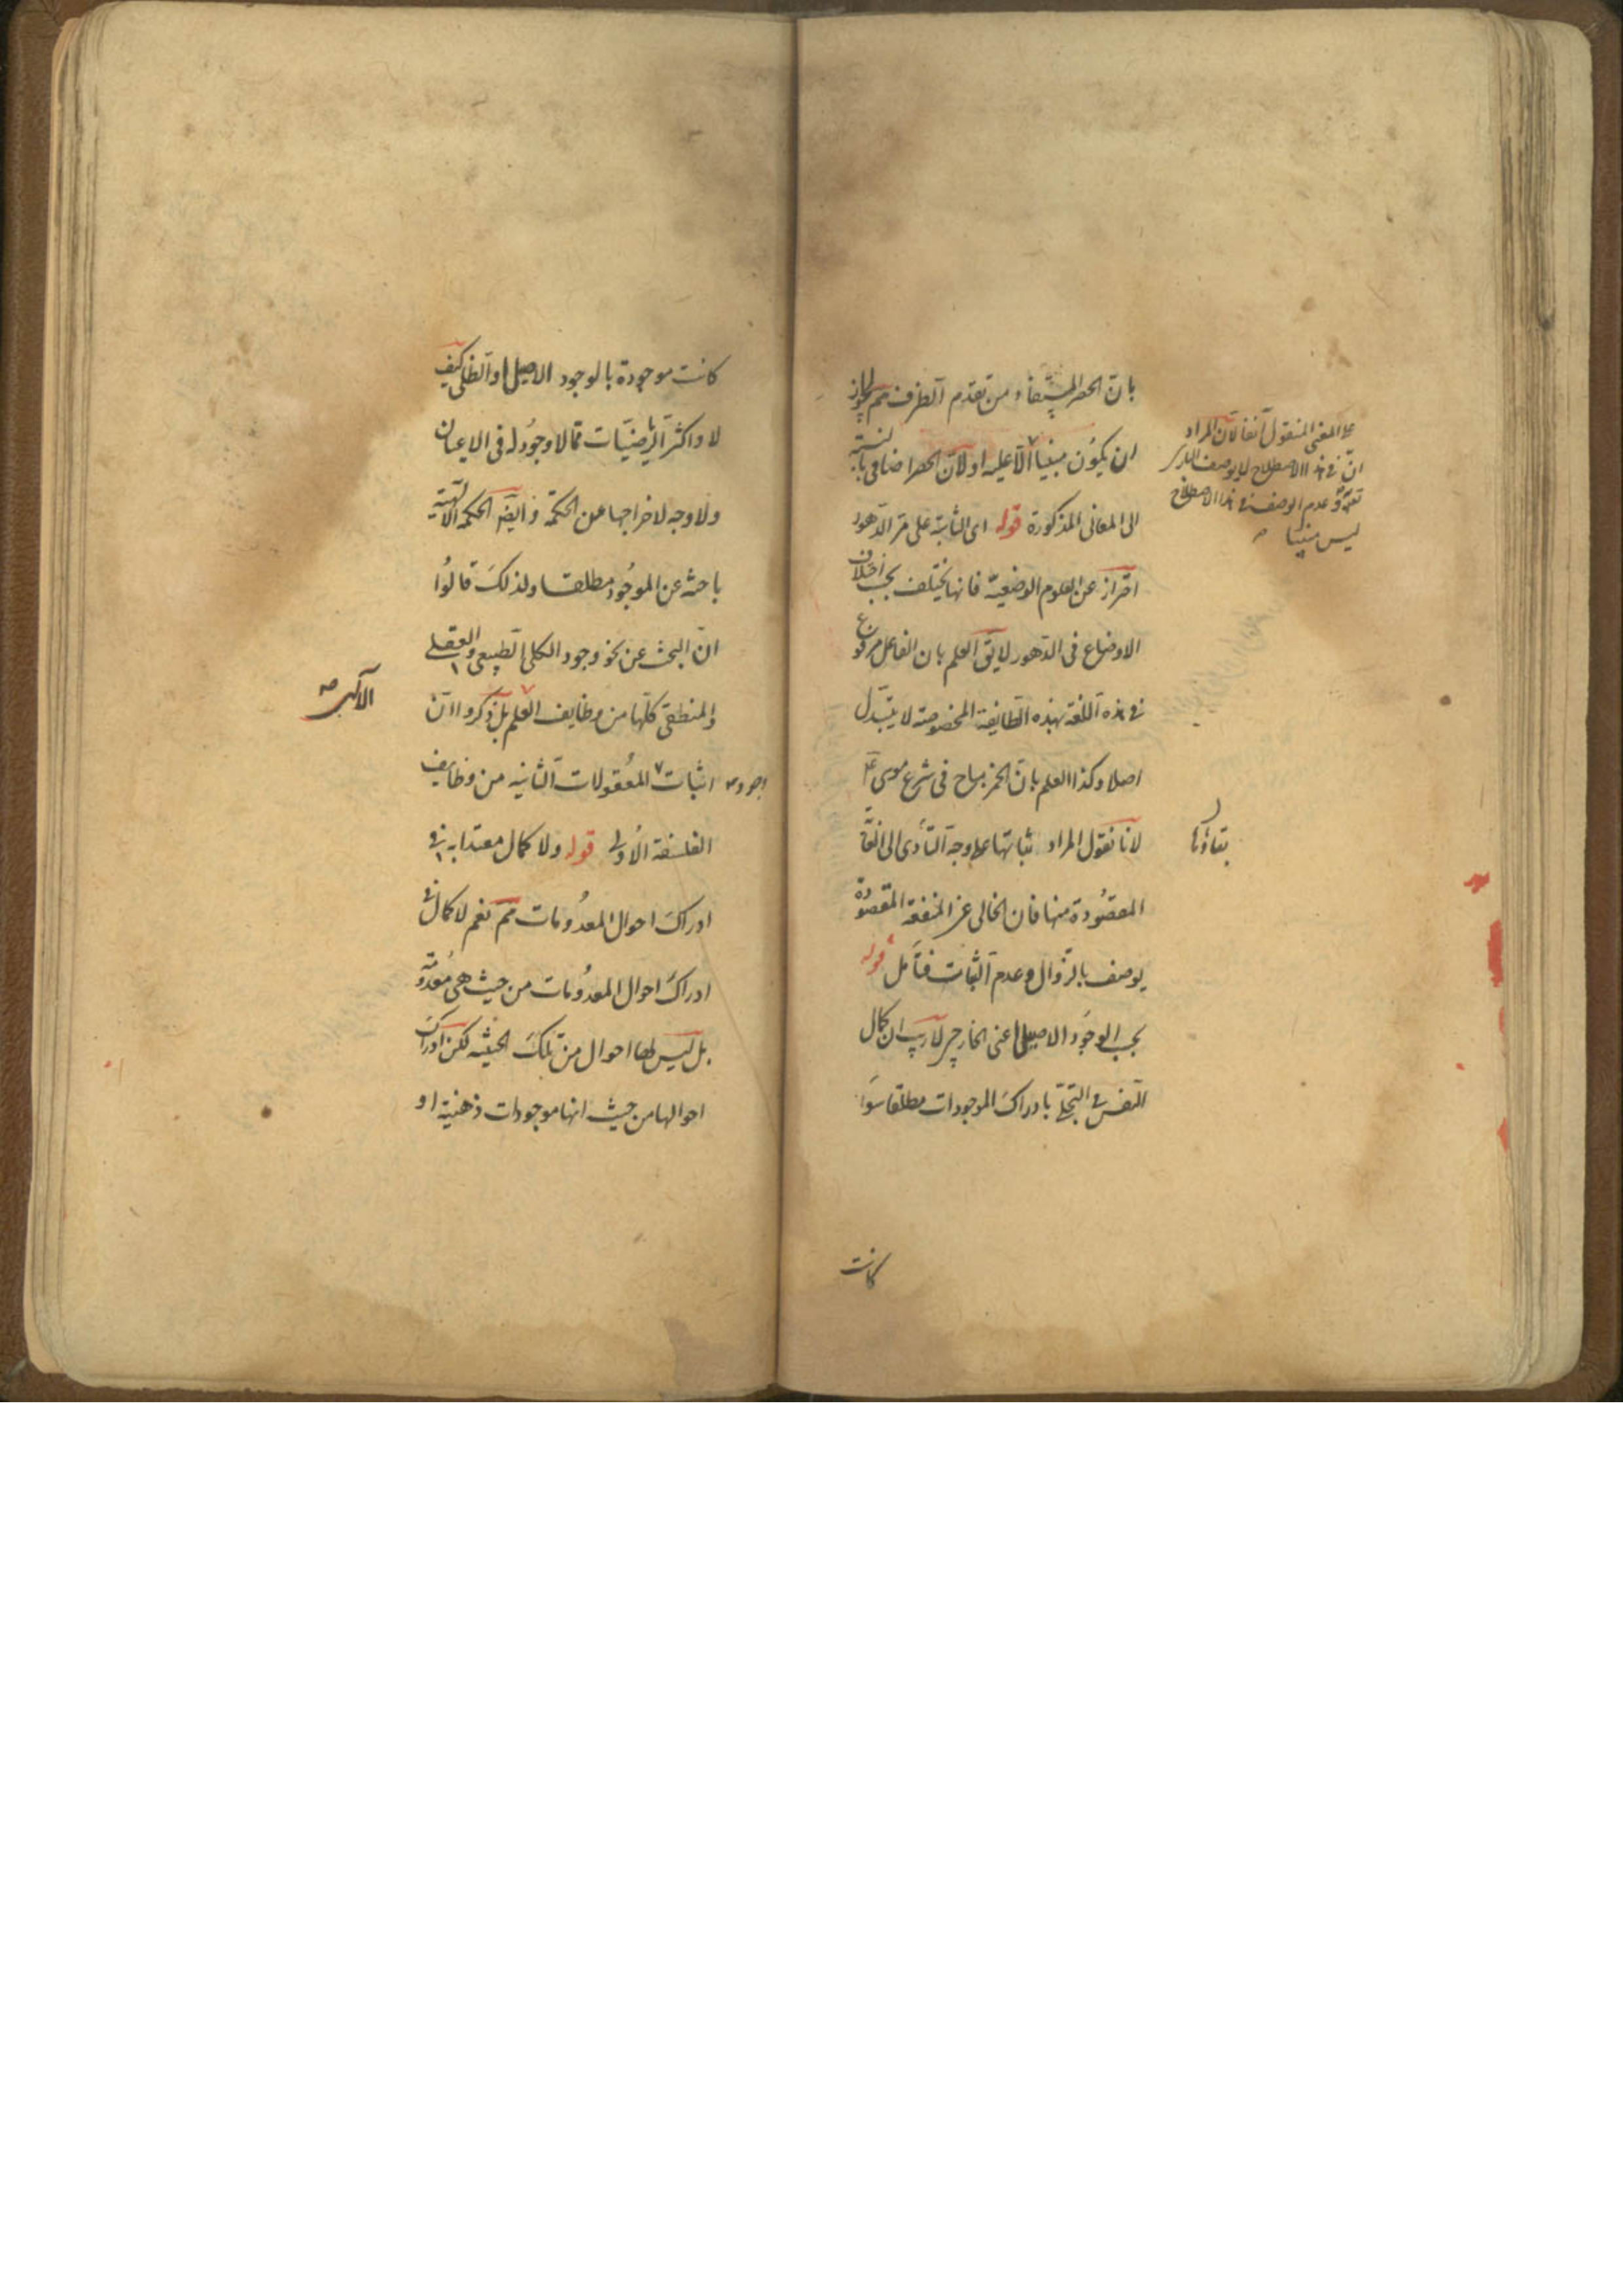 بانّ الحصر المستفاد من تقدم الظرف مم لجواز
ان يكون مبنيا الّا عليه او لانّ الحصر اضافى بالنسبة
الى المعانى المذكورة قوله اى الثابتة على مرّ الدّهور
احتراز عن العلوم الوضعيّة فانها يختلف بحسب اختلاف
الاوضاع فى الدّهور لا يق العلم بان الفاعل مرفوع
فى هذه اللّغة بهذه الطّايفة المخصوصة لا يتبدّل
اصلا وكذا العلم بانّ الخمر مباح فى شرع موسى ع
لانا نقول المراد ثباتها على وجه التّأدى الى
المقصودة منها فان الخالى عن المنفعة المقصودة
يوصف بالزّوال وعدم الثّبات فتأمل قوله
بحسب الوجود الاصيل اعنى الخارجى لا ريب ان كمال
النّفس فى التجلّى بادراك الموجودات مطلقا سواء
كانت
على المعنى المنقول آنفا لانّ المراد
انّ فى هذا الاصطلاح لا يوصف
وعدم الوصف فى هذا الاصطلاح
ليس مبنيا
بقاؤها
كانت موجودة بالوجود الاصيل او الظلى كيف
لا واكثر الرياضيّات ممّا لا وجود له فى الاعيان
ولا وجه لاخراجها عن الحكمة وايضا الحكمة الالهية
باحثة عن الموجود مطلقا ولذلك قالوا
انّ البحث عن نحو وجود الكلى الطّبيعى والعقلى
والمنطقى كلّها من وظايف العلم بل ذكروا انّ
اثبات المعقولات الثّانيه من وظايف
الفلسفة الاولى قوله ولا كمال معتدا به فى
ادراك احوال المعدومات مم نعم لا كمال فى
ادراك احوال المعدومات من حيث هى معدومة
بل ليس لها احوال من تلك الحيثية لكن ادراك
احوالها من حيث انها موجودات ذهنية او
وجود